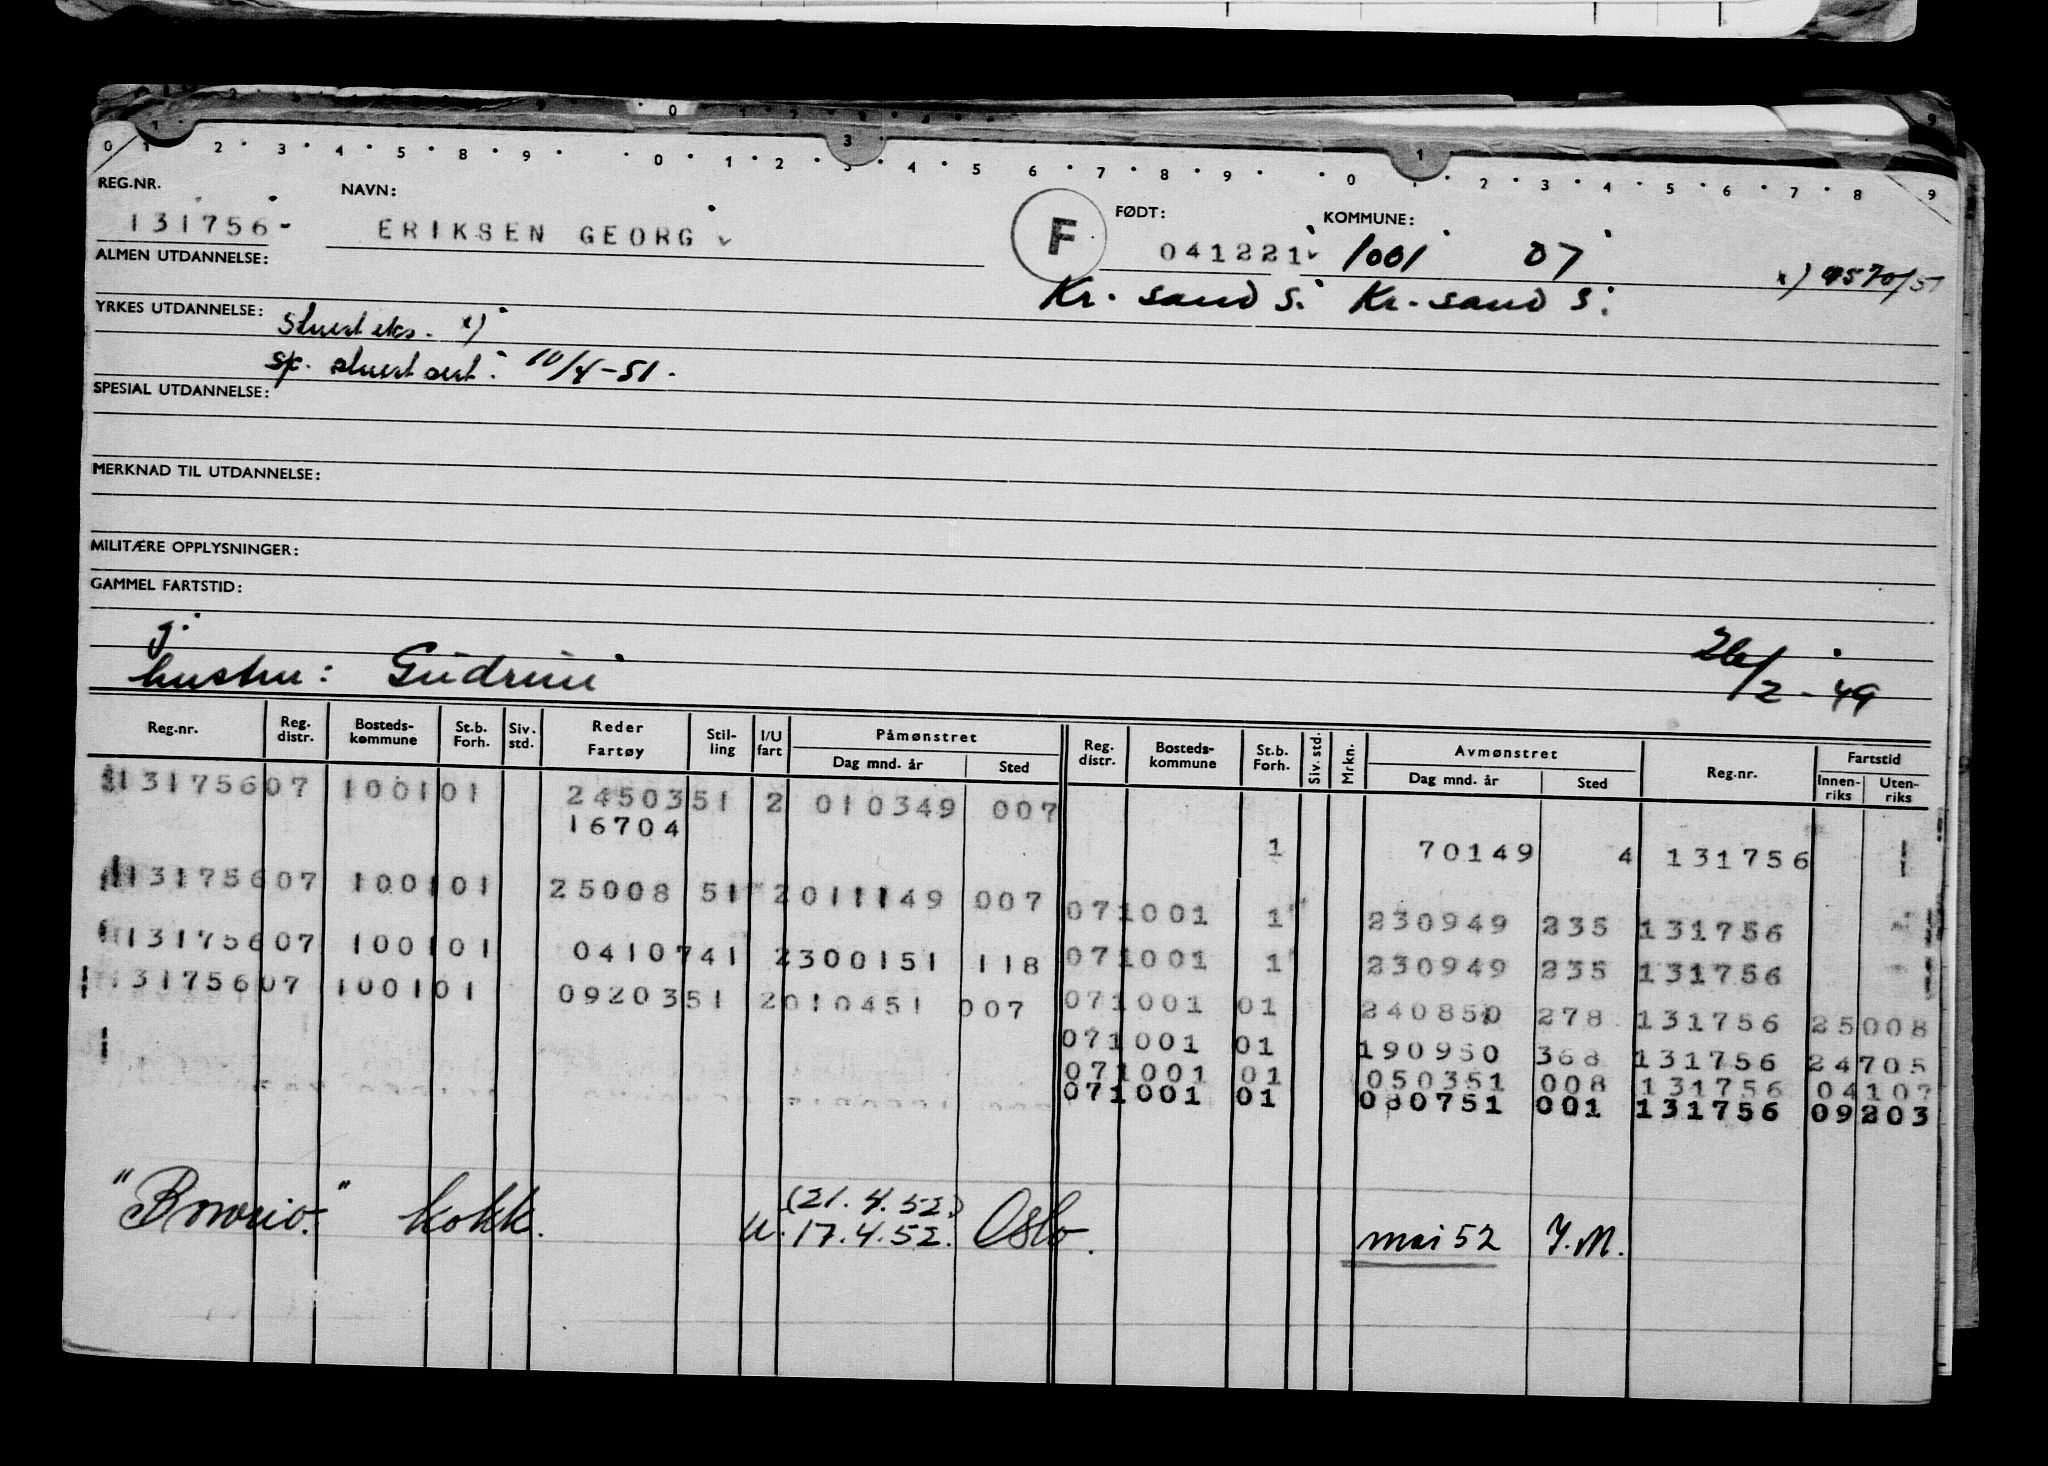 0 1 2 3 4 5 8 9 0 1 2 3 4 5 6 7 8 9 0 1 2 3 4 5 6 7 8 9
REG.NR. NAVN: FØDT: KOMMUNE:
131756- ERIKSEN GEORG F 041221 1001 07
Kr. sand S. Kr. sand S. x) 9570/51
ALMEN UTDANNELSE:
YRKES UTDANNELSE: Stuert eks. x)
sp. stuert sert. 10/4-51.
SPESIAL UTDANNELSE:
MERKNAD TIL UTDANNELSE:
MILITÆRE OPPLYSNINGER:
GAMMEL FARTSTID:
g.
hustru: Gudrun 26/2-49
Reg.nr. Reg. distr. Bosteds-kommune St.b. Forh. Siv. std. Reder Fartøy Stil-ling I/U fart Påmønstret Dag mnd. år Sted Reg. distr. Bosteds-kommune St.b. Forh. Siv. std. Mrkn. Avmønstret Dag mnd. år Sted Reg.nr. Fartstid Innen-riks Uten-riks
13175607 100101 2450351 2 010349 007
16704
1 70149 4 131756
13175607 100101 25008 51 2011149 007
071001 1 230949 235 131756
13175607 100101 0410741 2300151 118
071001 1 230949 235 131756
13175607 100101 0920351 2010451 007
071001 01 240850 278 131756 25008
071001 01 190950 368 131756 24705
071001 01 050351 008 131756 04107
071001 01 080751 001 131756 09203
(21.4.52)
kokk. u. 17.4.52. Oslo. mai 52 Y.M.